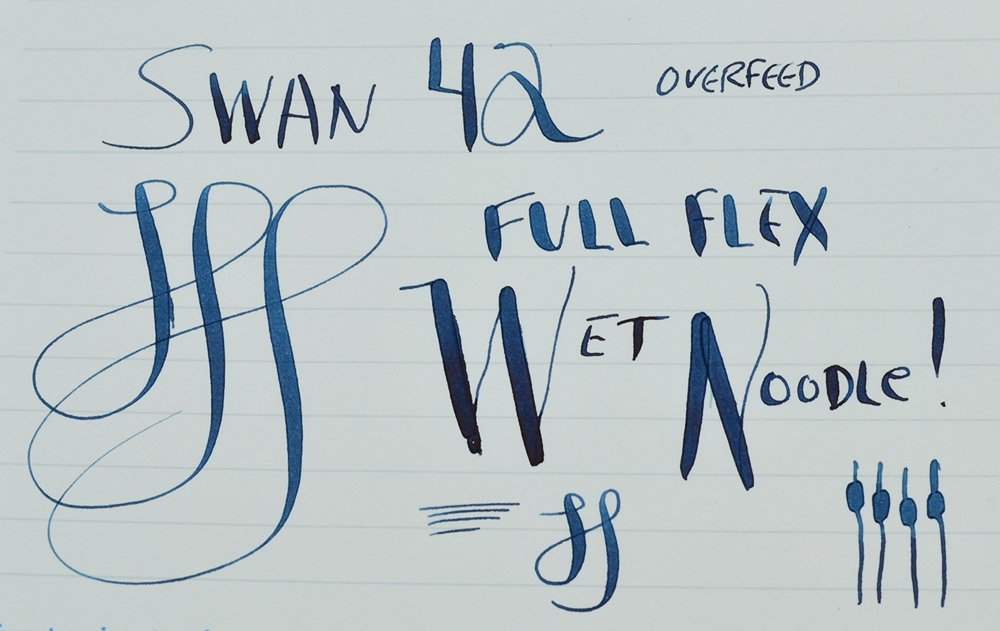 SWAN 42 OVERFEED
FULL FLEX
WET NOODLE!